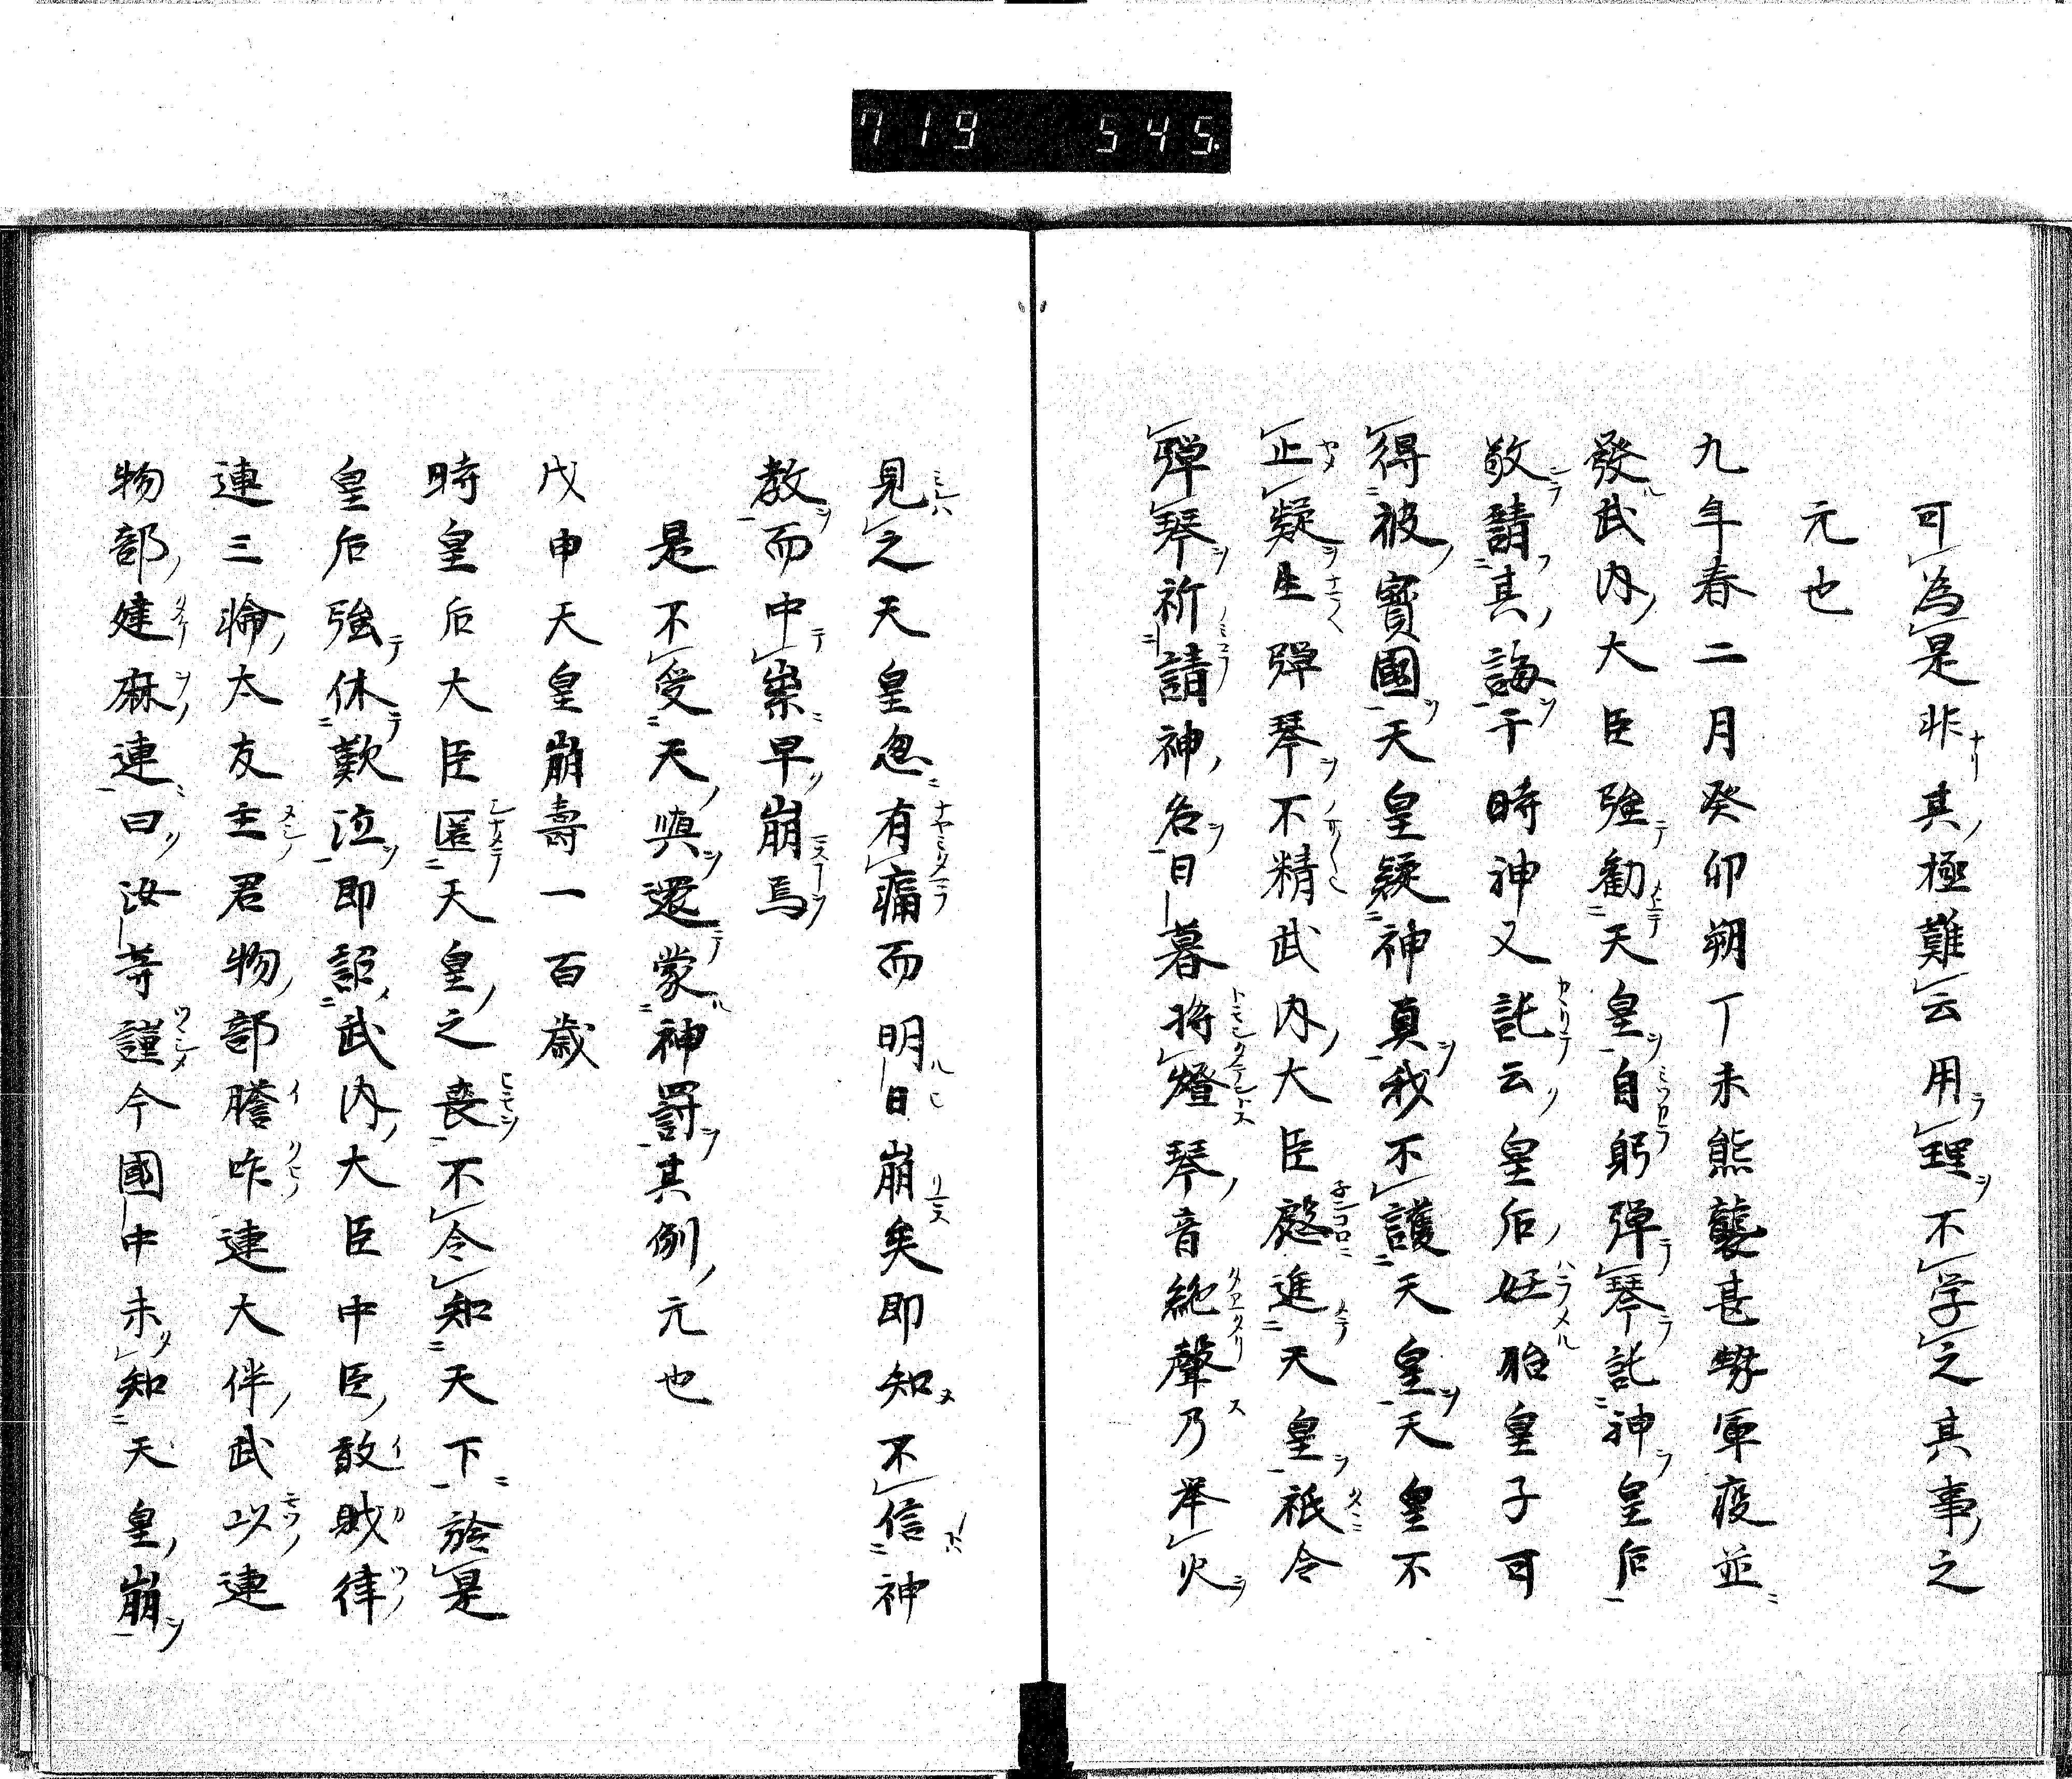 719 545.
可為是非其極難云用理不学之其事之
元也
九年春二月癸卯朔丁未熊襲甚勢軍疫並
發武内大臣強勧天皇自躬弾琴託神皇后
敬請其誨于時神又託云皇后妊胎皇子可
得彼寶國天皇疑神真我不護天皇天皇不
止疑生弾琴不精武内大臣慇進天皇祇令
弾琴祈請神名日暮将燈琴音絶聲乃举火
見之天皇忽有痛而明日崩矣即知不信神
教而中崇早崩焉
是不受天與還蒙神罰其例元也
戊申天皇崩壽一百歳
時皇后大臣匿天皇之喪不令知天下於是
皇后強休歎泣即詔武内大臣中臣敢賊律
連三輪太友主君物部膽咋連大伴武以連
物部建麻連曰汝等謹今國中未知天皇崩